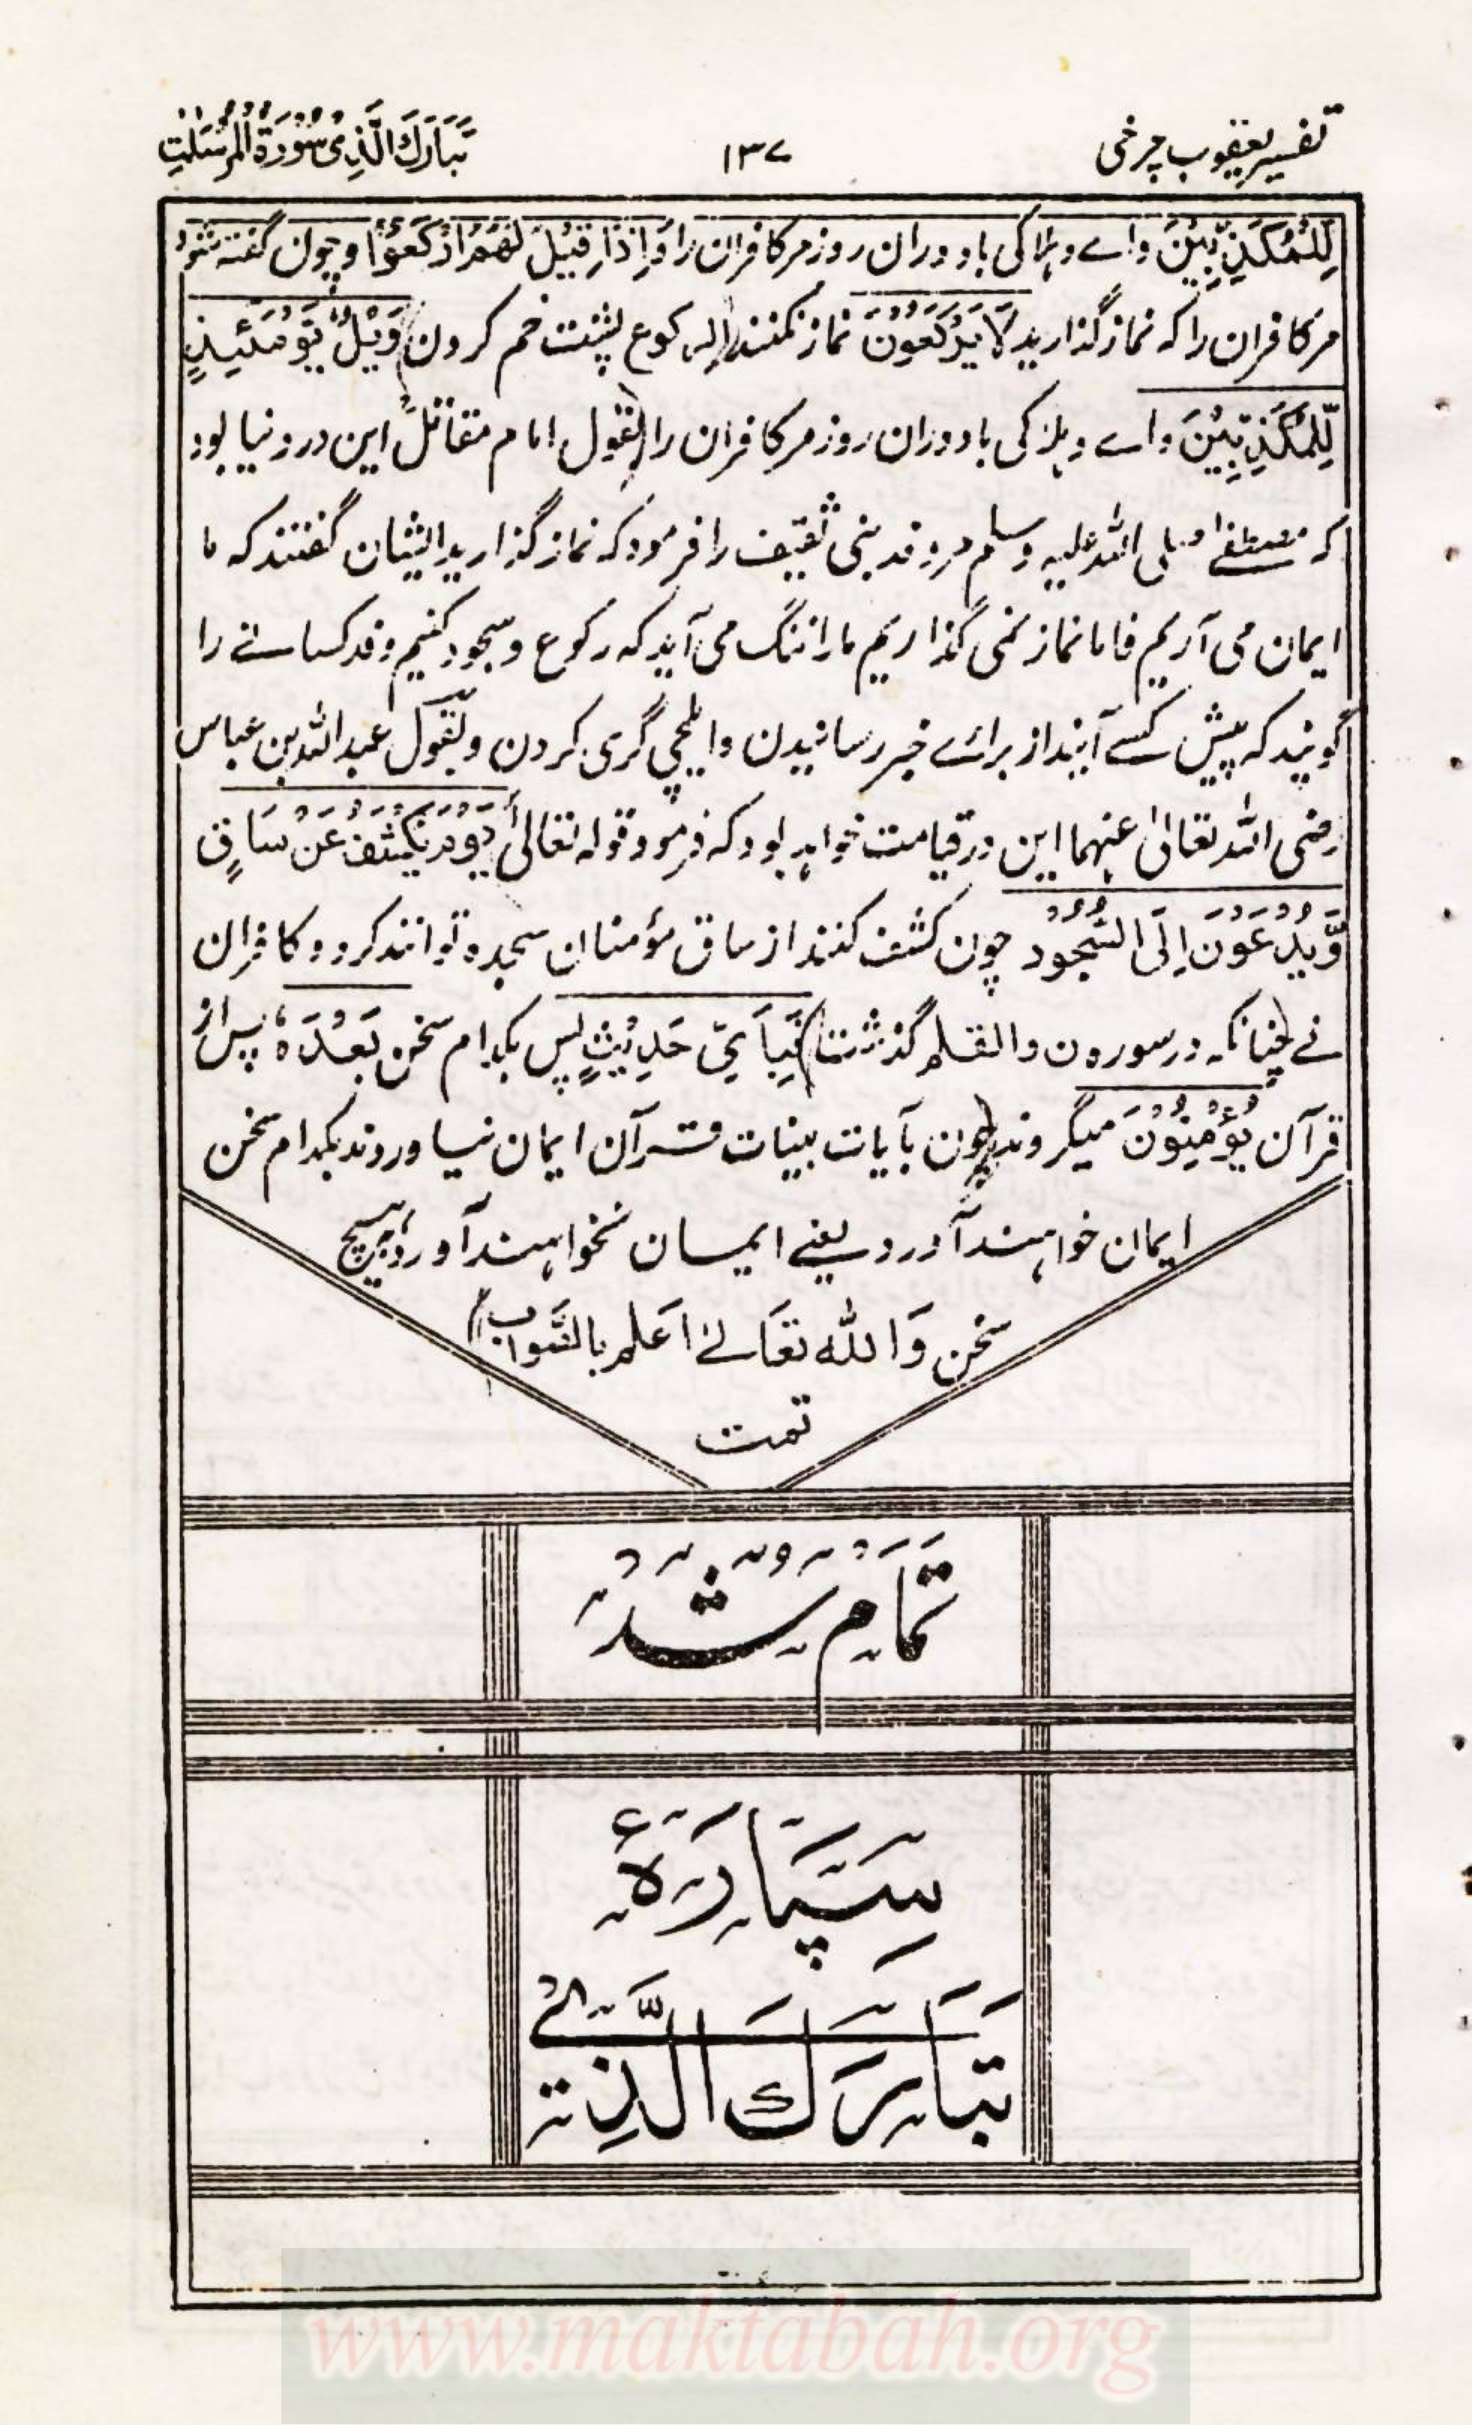 تفسیر یعقوب چرخی
۱۳۷
تَبَارَكَ الَّذِیْ سُوْرَةُ الْمُرْسَلٰتِ
لِّلْمُكَذِّبِیْنَ واے وہلاکی باد دران روز مر کافران را وَاِذَا قِیْلَ لَهُمُ ارْكَعُوْا وچون گفته شود
مر کافران را که نماز گذارید لَا یَرْكَعُوْنَ نماز نکنند (الرکوع پشت خم کردن) وَیْلٌ یَّوْمَئِذٍ
لِّلْمُكَذِّبِیْنَ واے وہلاکی باد دران روز مر کافران را (بقول امام مقاتلؒ این در دنیا بود
که مصطفےٰ صلی الله علیه وسلم مر وفد بنی ثقیف را فرمود که نماز گذارید ایشان گفتند که ما
ایمان می آریم فاما نماز نمی گذاریم ما را ننگ می آید که رکوع و سجود کنیم وفد کسانے را
گویند که پیش کسے آیند از برائے خبر رسانیدن و ایلچی گری کردن و بقول عبدالله بن عباس
رضی الله تعالیٰ عنهما این در قیامت خواهد بود که فرمود قوله تعالیٰ یَوْمَ یُكْشَفُ عَنْ سَاقٍ
وَّیُدْعَوْنَ اِلَی السُّجُوْدِ چون کشف کنند از ساق مؤمنان سجده توانند کرد و کافران
نے چنانکه در سوره ن والقلم گذشت) فَبِاَیِّ حَدِیْثٍ پس بکدام سخن بَعْدَهٗ پس از
قرآن یُؤْمِنُوْنَ میگروند (چون بآیات بینات قرآن ایمان نیاوردند بکدام سخن
ایمان خواهند آورد یعنے ایمان نخواهند آورد بهیچ
سخن وَالله تَعَالےٰ اَعلم بالصَّواب)
تمت
تَمَامْ شُدْ
سِیَپَارَهٔ
تَبَارَكَ الَّذِیْ
www.maktabah.org